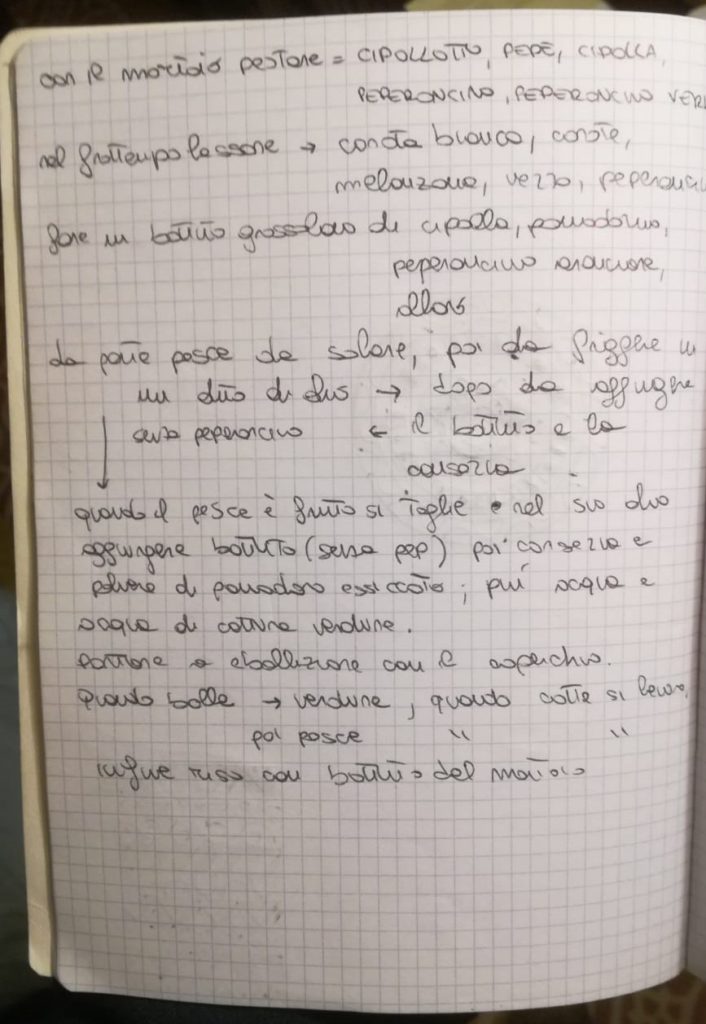 con il mortaio pestare = CIPOLLOTTO, PEPE, CIPOLLA,
PEPERONCINO, PEPERONCINO VER
nel frattempo lessare → carota bianca, carote,
melanzana, verza, peperonci
fare un battuto grossolano di cipolla, pomodorino,
peperoncino arancione,
alloro
da parte pesce da salare, poi da friggere in
un dito di olio → dopo da aggiungere
senza peperoncino ← il battuto e la
conserva
quando il pesce è fritto si toglie e nel suo olio
aggiungere battuto (senza pep) poi conserva e
polvere di pomodoro essiccato; più acqua e
acqua di cottura verdure.
portare a ebollizione con il coperchio.
quando bolle → verdure, quando cotte si levano,
poi pesce " "
infine riso con battuto del mortaio